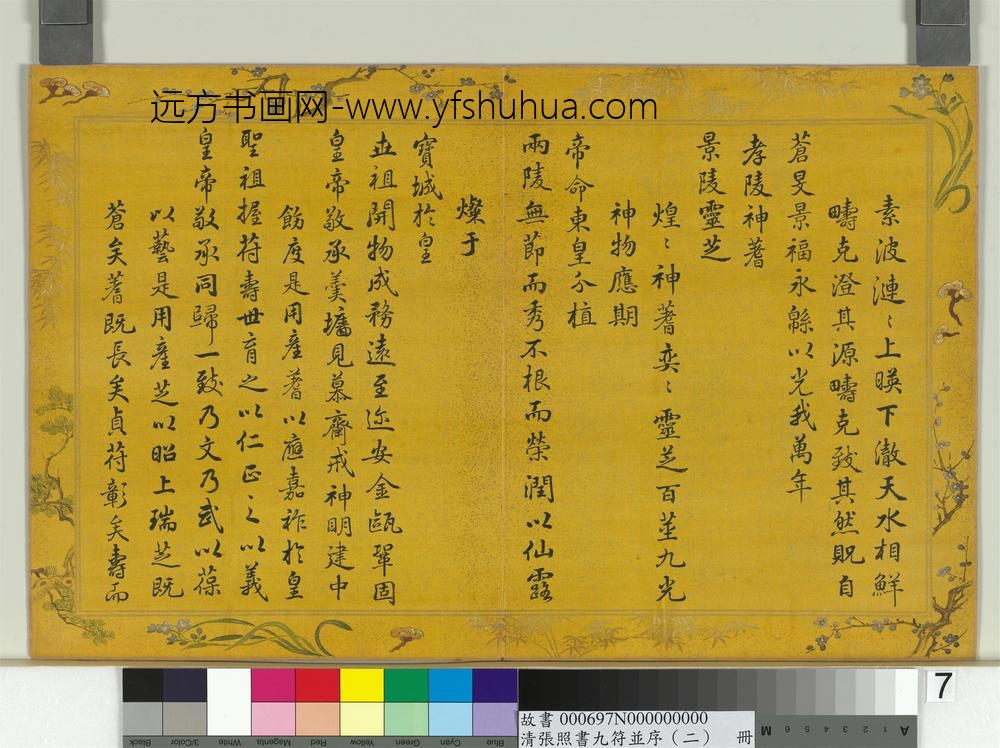 远方书画网-www.yfshuhua.com
素波漣〻上暎下澈天水相鮮
疇克澄其源疇克致其然貺自
蒼旻景福永緜以光我萬年
孝陵神蓍
景陵靈芝
煌〻神蓍奕〻靈芝百莖九光
神物應期
帝命東皇分植
兩陵無節而秀不根而榮潤以仙露
燦于
寶城於皇
世祖開物成務遠至迩安金甌鞏固
皇帝敬承羹墻見慕齋戒神明建中
飭度是用產蓍以應嘉祚於皇
聖祖握符壽世育之以仁正之以義
皇帝敬承同歸一致乃文乃武以葆
以藝是用產芝以昭上瑞芝既
蒼矣蓍既長矣貞符彰矣壽而
7
Black 3/Color White Magenta Red Yellow Green Cyan Blue
故書 000697N000000000
清張照書九符並序（二） 冊
A 1 2 3 4 5 6 M